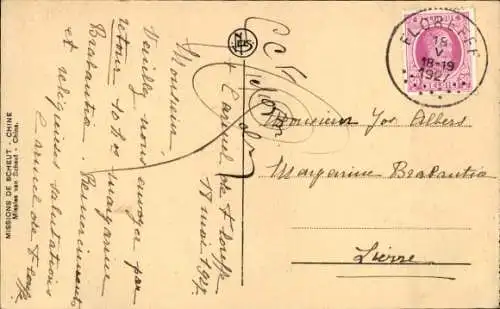 MISSIONS DE SCHEUT - CHINE
Missies van Scheut - China.
Carmel de Floreffe
18 mai 1927.
Monsieur
Veuillez nous envoyer par
retour 10 kos margarine
Brabantia. Remerciements
et religieuses salutations
Carmel de Floreffe
FLOREFFE
18
V
18-19
1927
Monsieur Jos Albers
Margarine Brabantia
Lierre